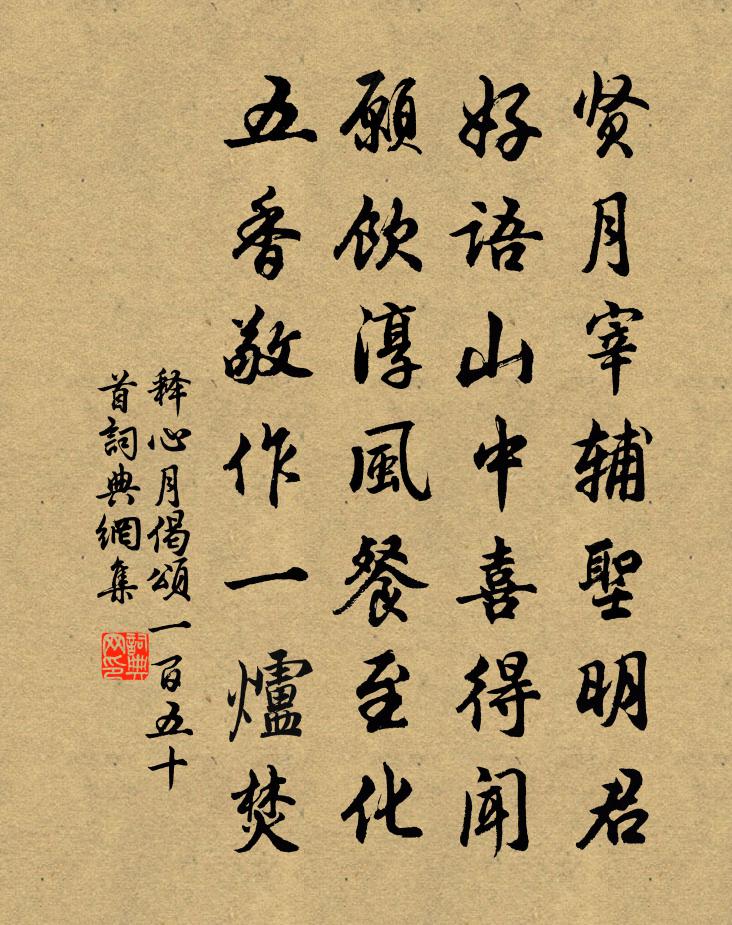 贤月宰辅聖明君
好语山中喜得闻
願飲淳風餐至化
五香敬作一爐焚
释心月偈頌一百五十
首詞典網集
詞典网印